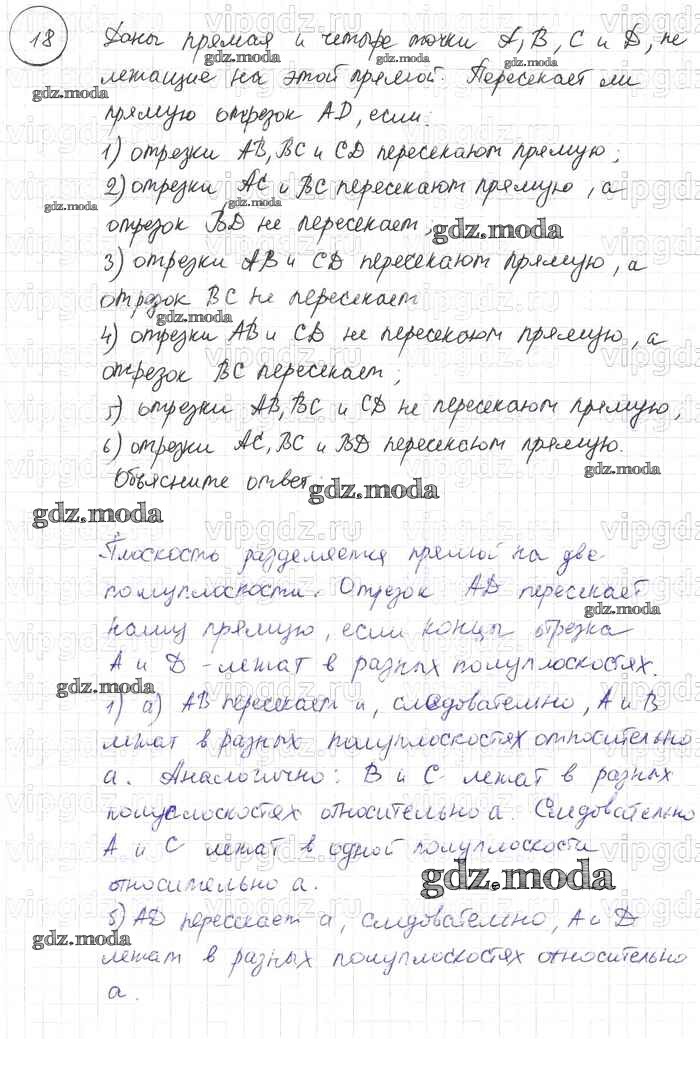 18 Даны прямая и четыре точки A, B, C и D, не
лежащие на этой прямой. Пересекает ли
прямую отрезок AD, если:
1) отрезки AB, BC и CD пересекают прямую;
2) отрезки AC и BC пересекают прямую, а
отрезок BD не пересекает;
3) отрезки AB и CD пересекают прямую, а
отрезок BC не пересекает
4) отрезки AB и CD не пересекают прямую, а
отрезок BC пересекает;
5) отрезки AB, BC и CD не пересекают прямую,
6) отрезки AC, BC и BD пересекают прямую.
Объясните ответ.
gdz.moda
Плоскость разделяется прямой на две
полуплоскости. Отрезок AD пересекает
нашу прямую, если концы отрезка
A и D - лежат в разных полуплоскостях.
1) а) AB пересекает и, следовательно, A и B
лежат в разных полуплоскостях относительно
a. Аналогично: B и C лежат в разных
полуслоскостях относительно a. Следовательно
A и C лежат в одной полуплоскости
относительно a.
б) AD пересекает a, следовательно, A и D
лежат в разных полуплоскостях относительно
a.